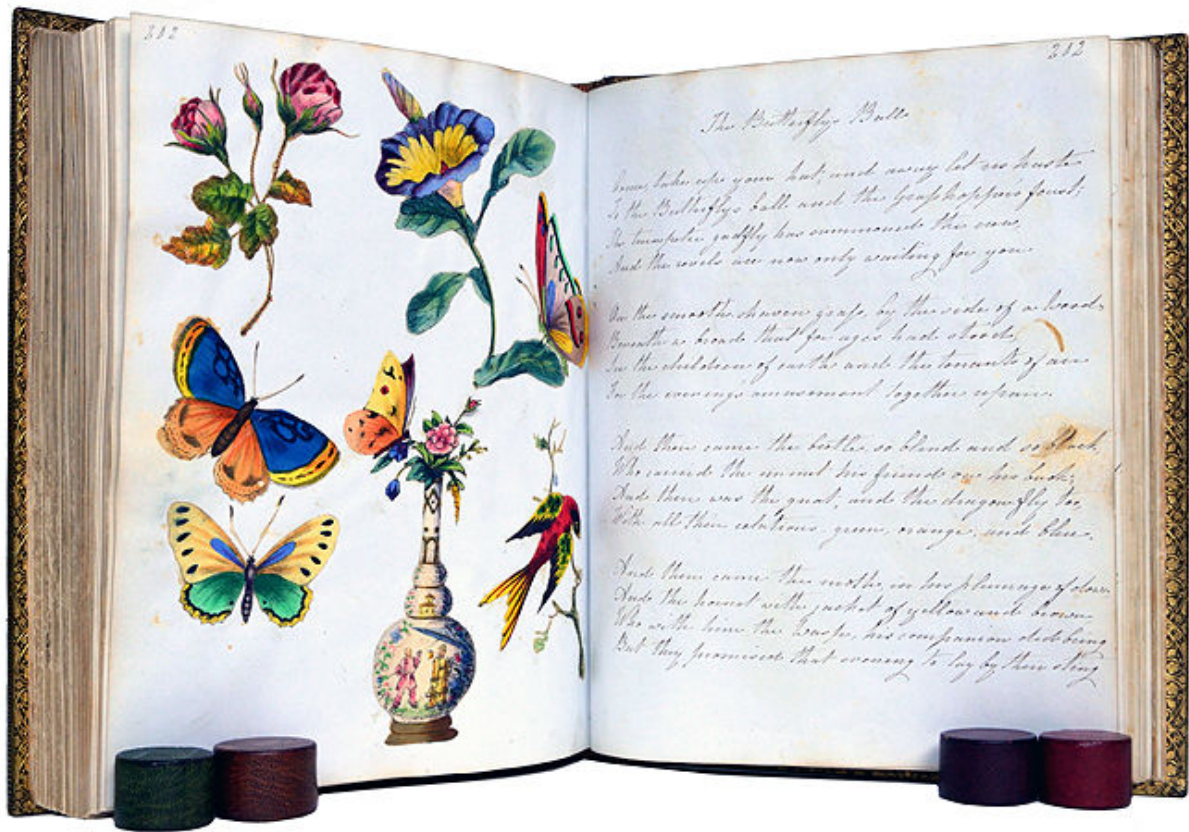 202
202
The Butterflys Ball
Come take up your hat, and away let us haste
To the Butterflys ball and the Grasshoppers feast;
The trumpeter gadfly has summoned the crew,
And the revels are now only waiting for you
On the smooth shaven grass, by the side of a wood
Beneath a broad that for ages had stood,
See the children of earth and the tenants of air
To the evenings amusement together repair.
And there came the beetle, so blind and so black,
Who carried the emmet his friend on his back;
And there was the gnat, and the dragonfly too,
With all their relations, green, orange, and blue.
And there came the moth, in his plumage of down
And the hornet with jacket of yellow and brown
Who with him the wasp, his companion did bring
But they promised that evening to lay by their sting